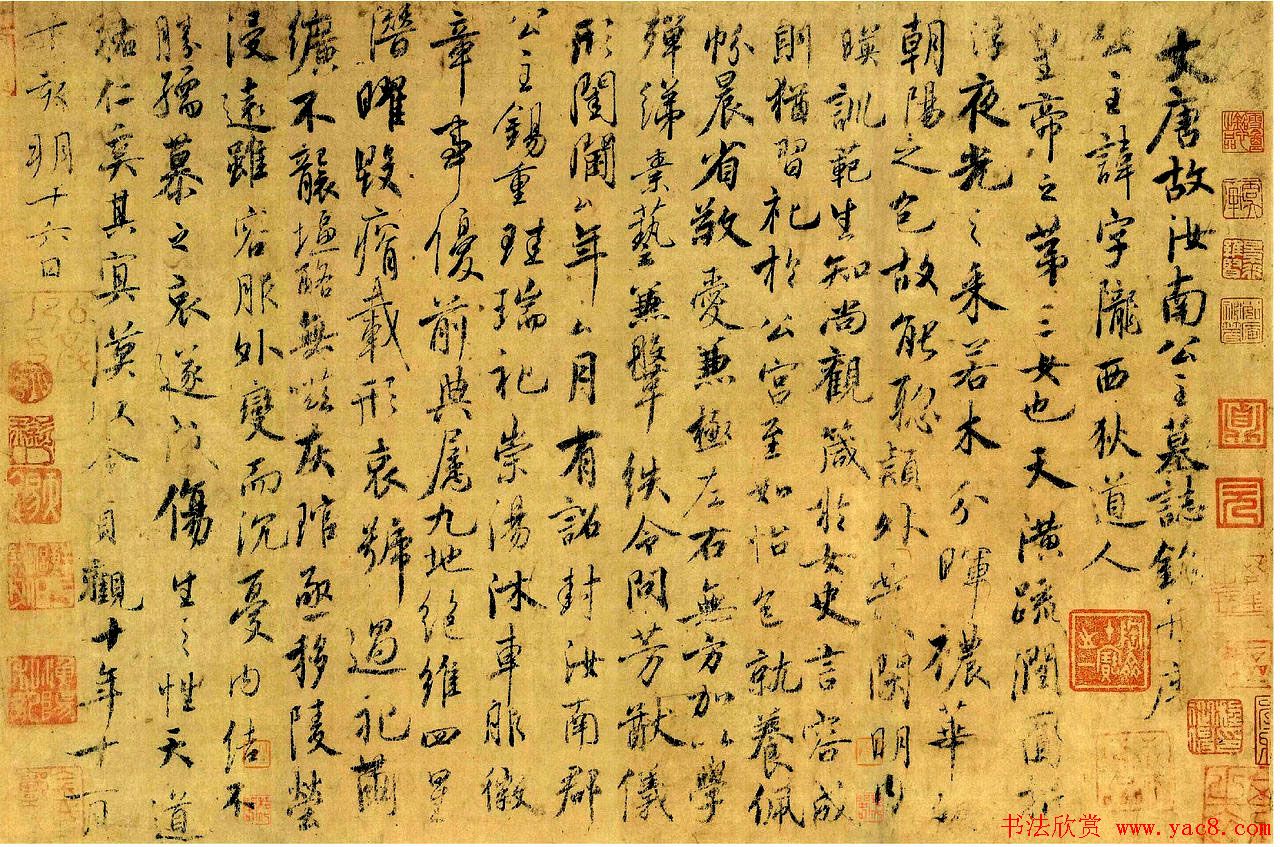 大唐故汝南公主墓誌銘并序
公主諱字隴西狄道人
皇帝之第三女也天潢疏潤圓折
浮夜光之采若木分暉穠華
朝陽之色故能聰穎外發閑明內
暎訓範生知尚觀箴於女史言容成
則猶習礼於公宮至如怡色就養佩
帉晨省敬愛兼極左右無方加以學
殫綈素藝兼鞶紩令問芳猷儀
形閨閫厶年厶月有詔封汝南郡
公主錫重珪瑞礼崇湯沐車服徽
章事優前典屬九地絕維四星
潛曜毀瘠載形哀號過礼繭
纊不襲塩酪無嗞灰琯亟移陵塋
浸遠雖容服外變而沉憂內結不
勝孺慕之哀遂成傷生之性天道
祐仁奚其冥漠以今貞觀十年十一月
丁亥朔十六日
书法欣赏 www.yac8.com